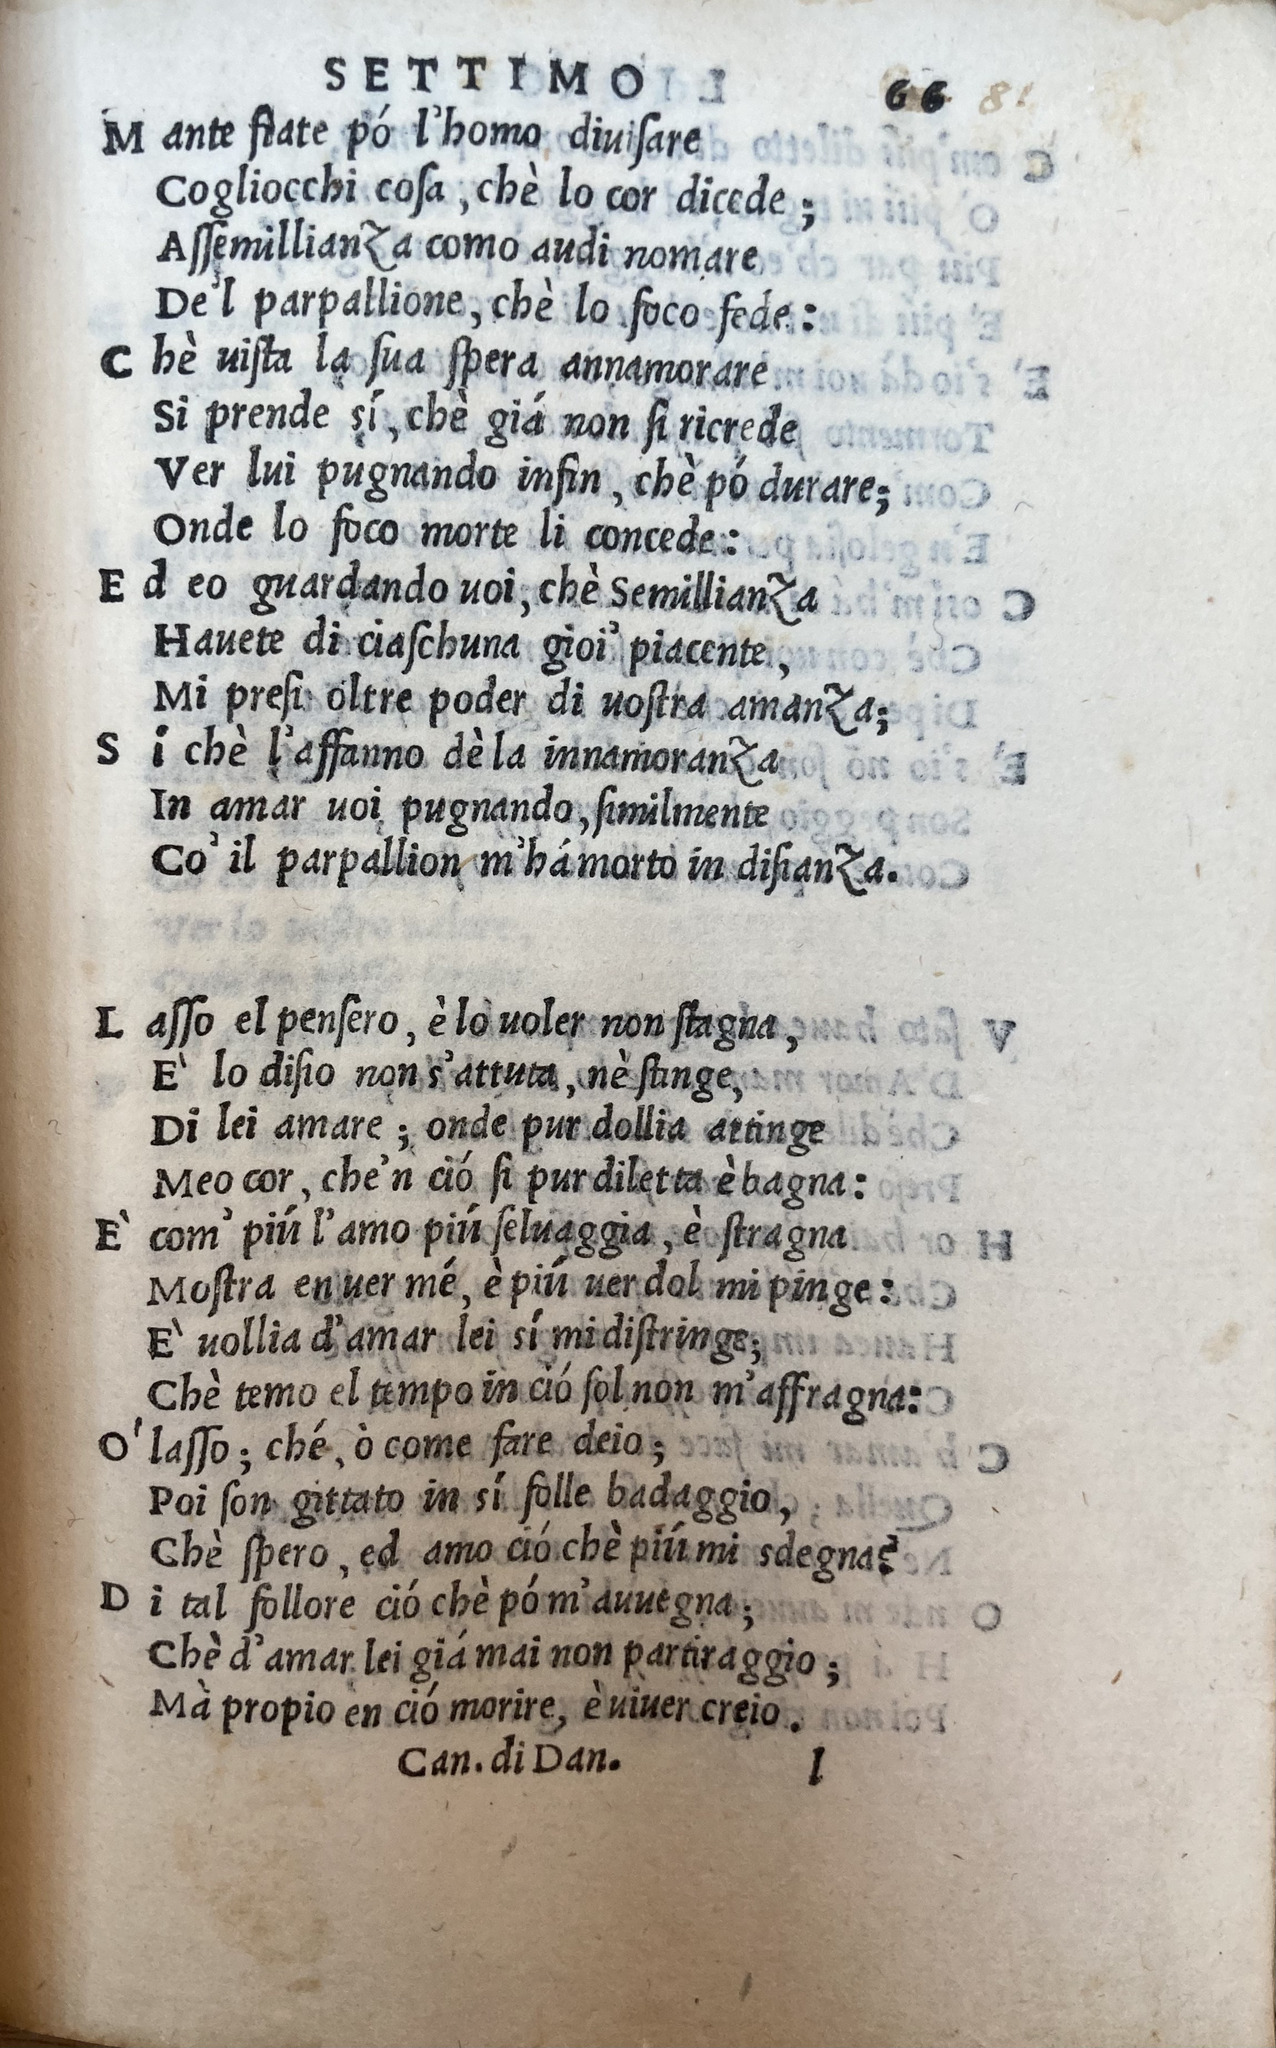 SETTIMO 66 81
M ante fiate pó l'homo diuiſare
Cogliocchi coſa, chè lo cor dicede;
Aſſemillianza como audi nomare
De'l parpallione, chè lo foco fede:
C hè uiſta la ſua ſpera annamorare
Si prende sí, chè giá non ſi ricrede
Ver lui pugnando infin, chè pó durare;
Onde lo foco morte li concede:
E d eo guardando uoi, chè Semillianza
Hauete di ciaſchuna gioi' piacente,
Mi preſi oltre poder di uoſtra amanza;
S i chè l'affanno dè la innamoranza
In amar uoi pugnando, ſimilmente
Co' il parpallion m'há morto in diſianza.
L aſſo el penſero, è lo uoler non ſtagna,
E' lo diſio non s'attuta, nè ſtinge,
Di lei amare; onde pur dollia attinge
Meo cor, che'n ció ſi pur diletta è bagna:
E' com' piú l'amo piú ſeluaggia, è ſtragna
Moſtra en uer mé, è piú uer dol mi pinge:
E' uollia d'amar lei sí mi diſtringe;
Chè temo el tempo in ció ſol non m'affragna:
O' laſſo; ché, ò come fare deio;
Poi ſon gittato in sí folle badaggio,
Chè ſpero, ed amo ció chè piú mi sdegna?
D i tal follore ció chè pó m'auuegna;
Chè d'amar lei giá mai non partiraggio;
Mà propio en ció morire, è uiuer creio.
Can. di Dan. l